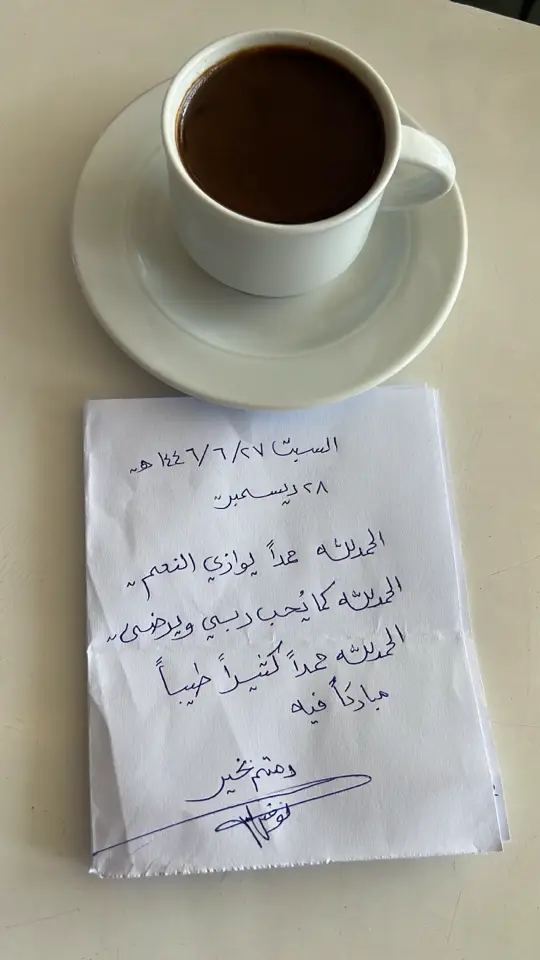 السبت ٢٧/ ٦/ ١٤٤٦ هـ
٢٨ ديسمبر
الحمدلله حمداً يوازي النعم
الحمدلله كما يُحب ربي ويرضى
الحمدلله حمداً كثيراً طيباً
مباركاً فيه
دمتم بخير